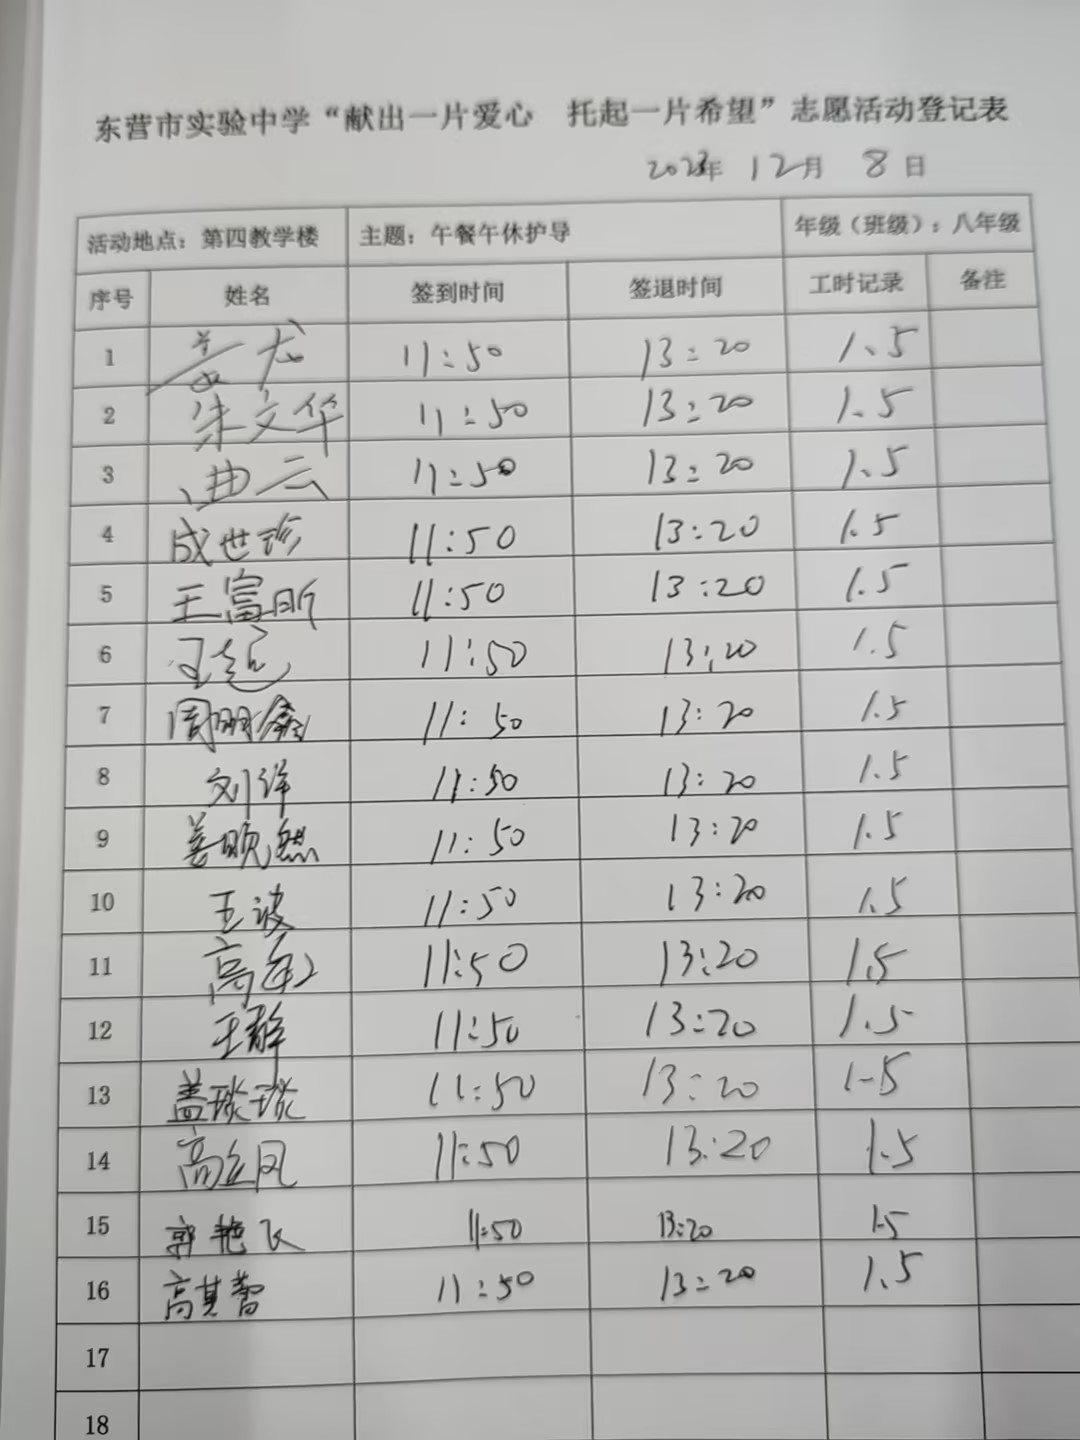 东营市实验中学“献出一片爱心 托起一片希望”志愿活动登记表
2023年 12月 8日
活动地点：第四教学楼 主题：午餐午休护导 年级（班级）：八年级
序号 姓名 签到时间 签退时间 工时记录 备注
1 姜龙 11:50 13:20 1.5
2 朱文华 11:50 13:20 1.5
3 曲云 11:50 13:20 1.5
4 成世珍 11:50 13:20 1.5
5 王富昕 11:50 13:20 1.5
6 王超 11:50 13:20 1.5
7 周明鑫 11:50 13:20 1.5
8 刘祥 11:50 13:20 1.5
9 姜顺然 11:50 13:20 1.5
10 王波 11:50 13:20 1.5
11 高 11:50 13:20 1.5
12 王静 11:50 13:20 1.5
13 盖琰琰 11:50 13:20 1.5
14 高立凤 11:50 13:20 1.5
15 郭艳飞 11:50 13:20 1.5
16 高其智 11:50 13:20 1.5
17
18